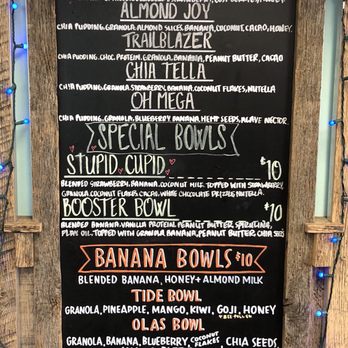 ALMOND JOY
CHIA PUDDING, GRANOLA, ALMOND SLICES, BANANA, COCONUT, CACAO, HONEY
TRAILBLAZER
CHIA PUDDING, CHOC. PROTEIN, GRANOLA, BANANA, PEANUT BUTTER, CACAO
CHIA TELLA
CHIA PUDDING, GRANOLA, STRAWBERRY, BANANA, COCONUT FLAKES, NUTELLA
OH MEGA
CHIA PUDDING, GRANOLA, BLUEBERRY, BANANA, HEMP SEEDS, AGAVE NECTAR
SPECIAL BOWLS
STUPID CUPID $10
BLENDED STRAWBERRY, BANANA, COCONUT MILK. TOPPED WITH STRAWBERRY,
GRANOLA, COCONUT FLAKES, CACAO, WHITE CHOCOLATE DRIZZLE, NUTELLA
BOOSTER BOWL $10
BLENDED BANANA, VANILLA PROTEIN, PEANUT BUTTER, SPIRULINA,
TOPPED WITH GRANOLA, BANANA, PEANUT BUTTER, CHIA SEEDS
BANANA BOWLS $10
BLENDED BANANA, HONEY + ALMOND MILK
TIDE BOWL
GRANOLA, PINEAPPLE, MANGO, KIWI, GOJI, HONEY
+ BEE POLLEN
OLAS BOWL
GRANOLA, BANANA, BLUEBERRY, COCONUT FLAKES, CHIA SEEDS